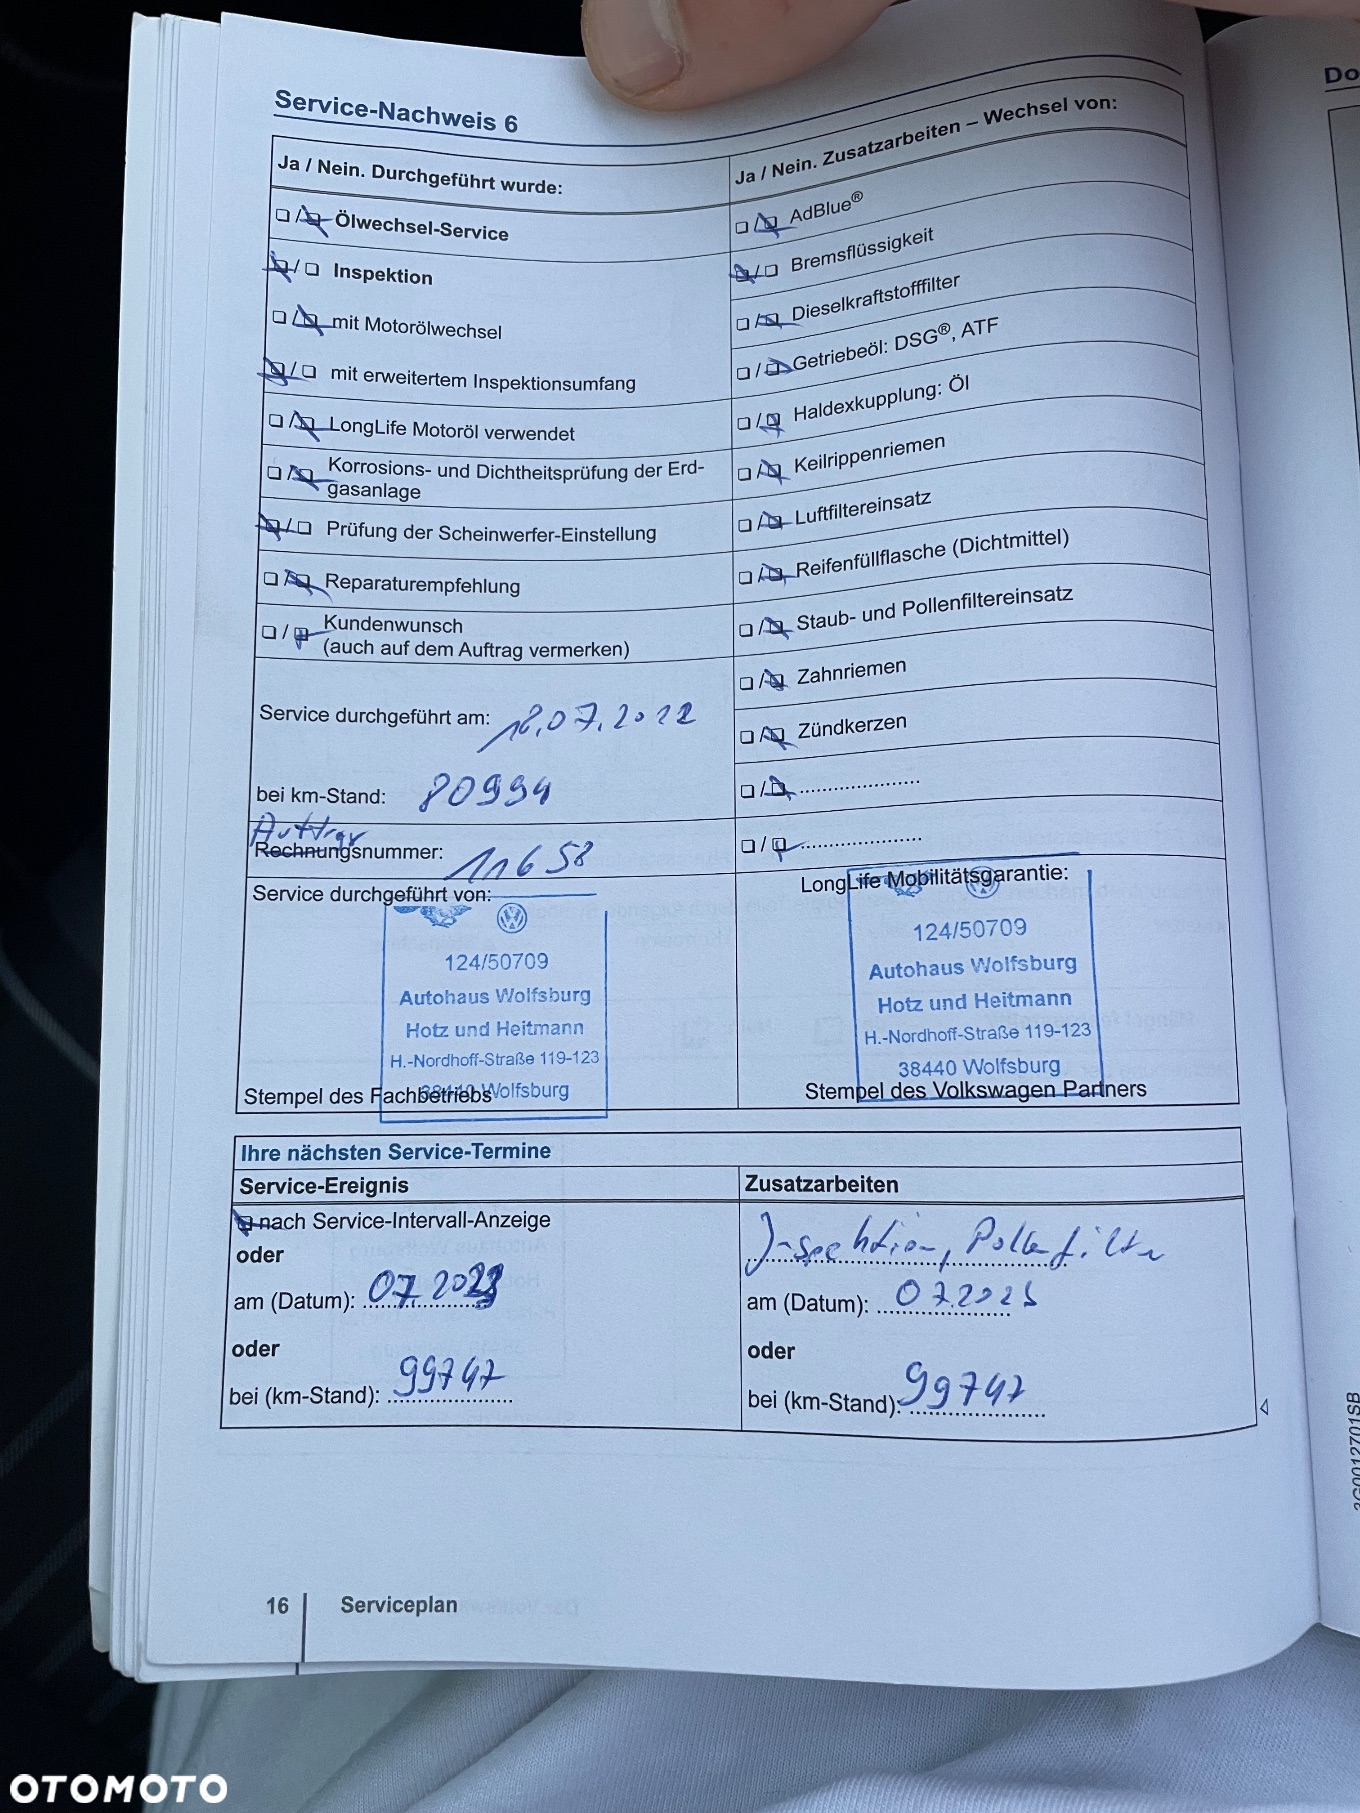 Service-Nachweis 6
Do
Ja / Nein. Durchgeführt wurde:
Ölwechsel-Service
Inspektion
mit Motorölwechsel
mit erweitertem Inspektionsumfang
LongLife Motoröl verwendet
Korrosions- und Dichtheitsprüfung der Erd-
gasanlage
Prüfung der Scheinwerfer-Einstellung
Reparaturempfehlung
Kundenwunsch
(auch auf dem Auftrag vermerken)
Service durchgeführt am: 18.07.2022
bei km-Stand: 80994
Auftrags
Rechnungsnummer: 11658
Service durchgeführt von:
124/50709
Autohaus Wolfsburg
Hotz und Heitmann
H.-Nordhoff-Straße 119-123
38440 Wolfsburg
Stempel des Fachbetriebs
Ja / Nein. Zusatzarbeiten – Wechsel von:
AdBlue®
Bremsflüssigkeit
Dieselkraftstofffilter
Getriebeöl: DSG®, ATF
Haldexkupplung: Öl
Keilrippenriemen
Luftfiltereinsatz
Reifenfüllflasche (Dichtmittel)
Staub- und Pollenfiltereinsatz
Zahnriemen
Zündkerzen
LongLife Mobilitätsgarantie:
124/50709
Autohaus Wolfsburg
Hotz und Heitmann
H.-Nordhoff-Straße 119-123
38440 Wolfsburg
Stempel des Volkswagen Partners
Ihre nächsten Service-Termine
Service-Ereignis
nach Service-Intervall-Anzeige
oder
am (Datum): 07.2023
oder
bei (km-Stand): 99747
Zusatzarbeiten
Inspektion, Pollenfilter
am (Datum): 07.2023
oder
bei (km-Stand): 99747
3G0012701SB
16 Serviceplan
OTOMOTO